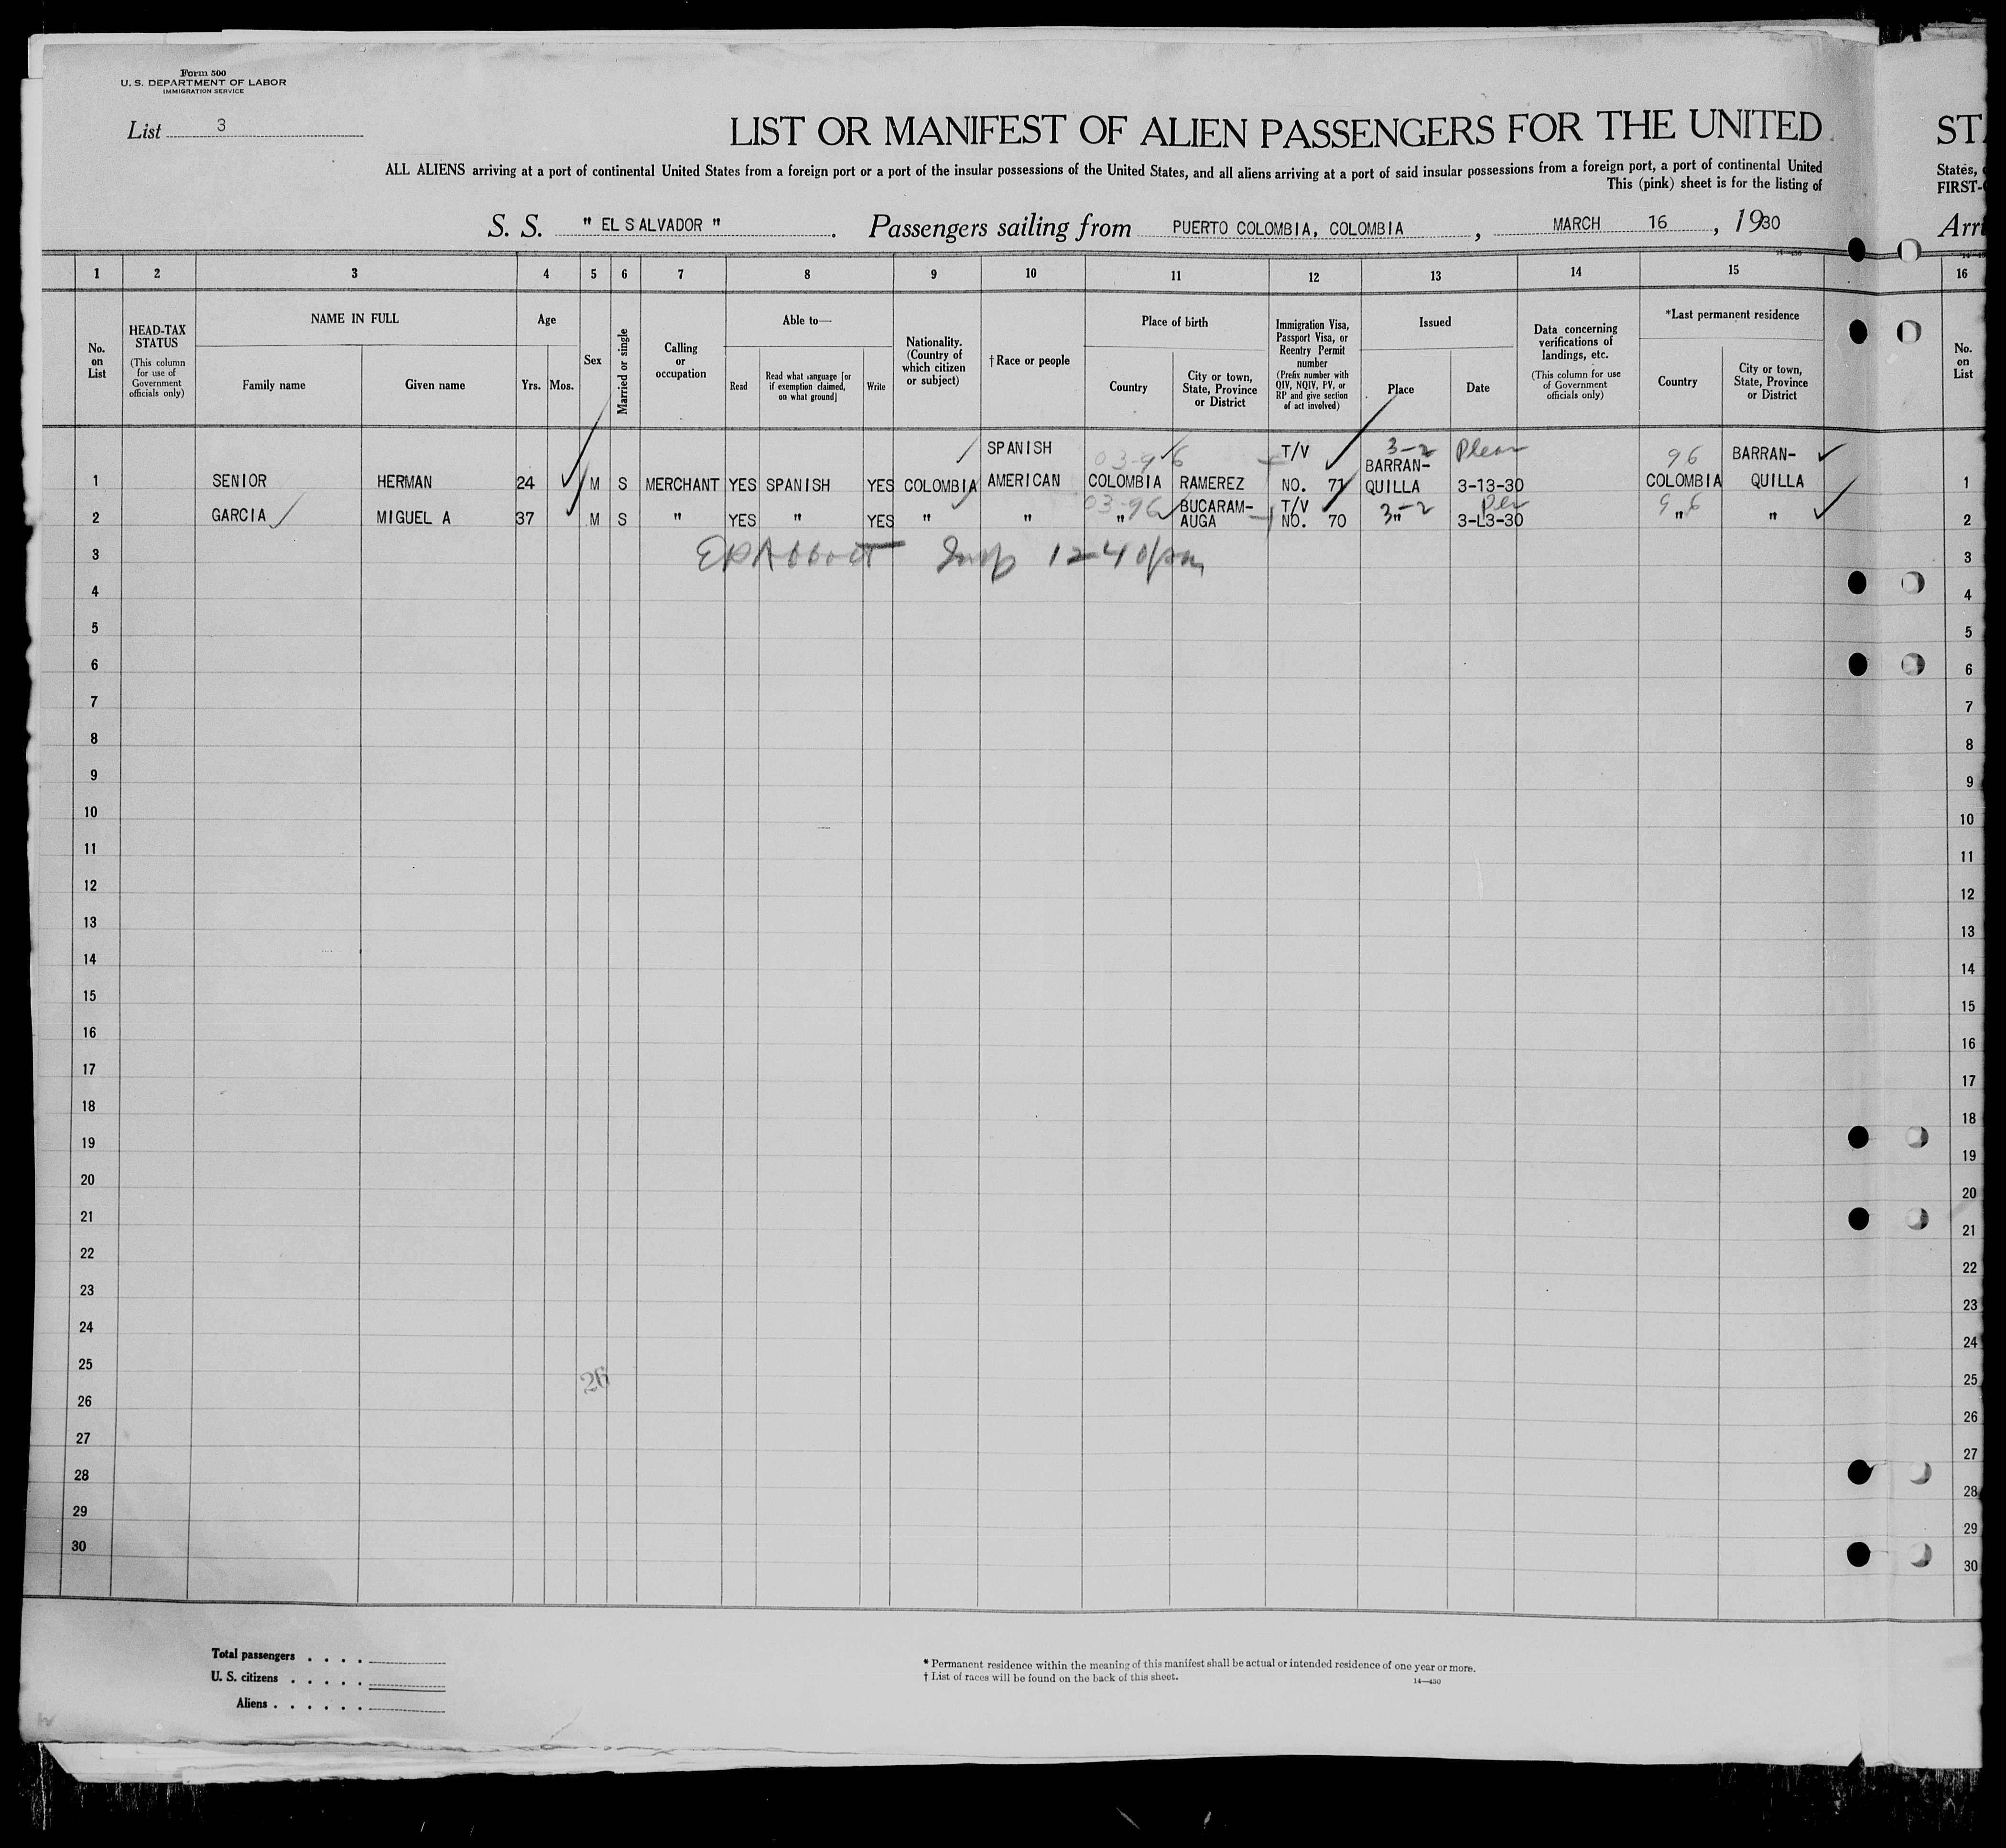 Form 500
U. S. DEPARTMENT OF LABOR
IMMIGRATION SERVICE
List 3
LIST OR MANIFEST OF ALIEN PASSENGERS FOR THE UNITED
ST
ALL ALIENS arriving at a port of continental United States from a foreign port or a port of the insular possessions of the United States, and all aliens arriving at a port of said insular possessions from a foreign port, a port of continental United
States,
This (pink) sheet is for the listing of
FIRST-
S. S. " EL SALVADOR ". Passengers sailing from PUERTO COLOMBIA, COLOMBIA, MARCH 16, 1930
Arri
14—430
1 2 3 4 5 6 7 8 9 10 11 12 13 14 15 16
No. on List
HEAD-TAX STATUS
(This column for use of Government officials only)
NAME IN FULL
Family name
Given name
Age
Yrs.
Mos.
Sex
Married or single
Calling or occupation
Able to—
Read
Read what language [or if exemption claimed, on what ground]
Write
Nationality. (Country of which citizen or subject)
†Race or people
Place of birth
Country
City or town, State, Province or District
Immigration Visa, Passport Visa, or Reentry Permit number
(Prefix number with QIV, NQIV, PV, or RP and give section of act involved)
Issued
Place
Date
Data concerning verifications of landings, etc.
(This column for use of Government officials only)
*Last permanent residence
Country
City or town, State, Province or District
No. on List
SPANISH 03-96 T/V 3-2 96 BARRAN-
BARRAN-
1 SENIOR HERMAN 24 M S MERCHANT YES SPANISH YES COLOMBIA AMERICAN COLOMBIA RAMEREZ NO. 71 QUILLA 3-13-30 COLOMBIA QUILLA 1
03-96 BUCARAM- T/V 3-2 96
2 GARCIA MIGUEL A 37 M S " YES " YES " " " AUGA NO. 70 " 3-L3-30 " " 2
Insp 12-40pm
3 3
4 4
5 5
6 6
7 7
8 8
9 9
10 10
11 11
12 12
13 13
14 14
15 15
16 16
17 17
18 18
19 19
20 20
21 21
22 22
23 23
24 24
25 25
26
26 26
27 27
28 28
29 29
30 30
Total passengers . . . .
U. S. citizens . . . . .
Aliens . . . . . .
* Permanent residence within the meaning of this manifest shall be actual or intended residence of one year or more.
† List of races will be found on the back of this sheet.
14—430